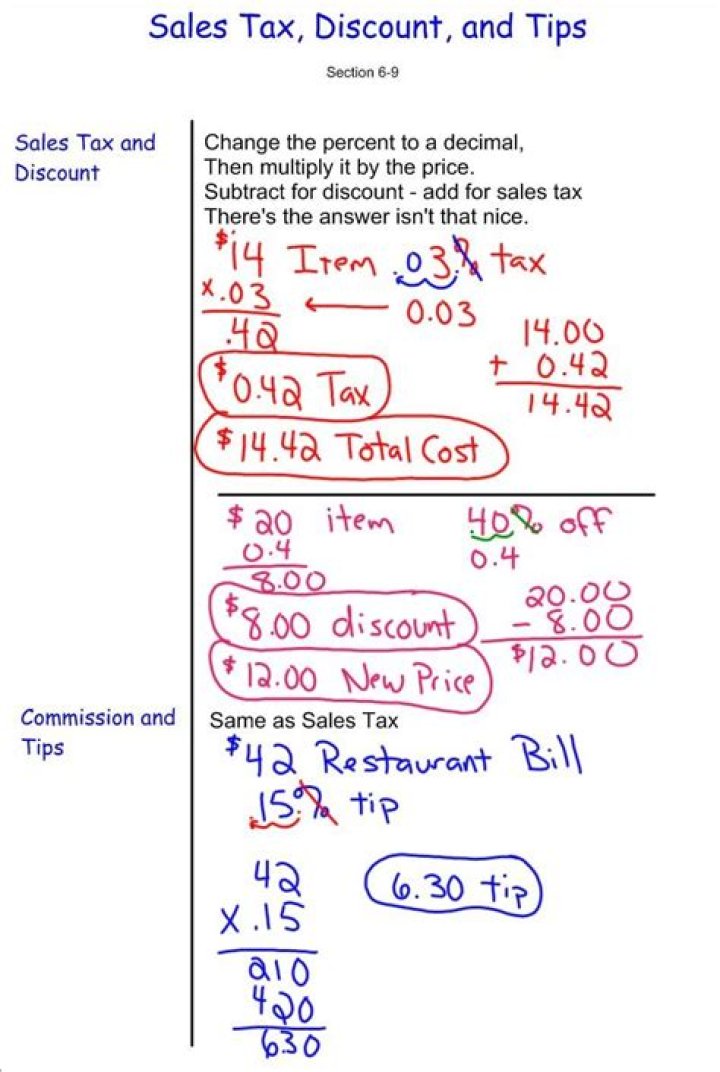 Sales Tax, Discount, and Tips
Section 6-9
Sales Tax and
Discount
Change the percent to a decimal,
Then multiply it by the price.
Subtract for discount - add for sales tax
There's the answer isn't that nice.
$14 Item .03.% tax
x.03
0.03
.42
14.00
+ 0.42
14.42
$0.42 Tax
$14.42 Total Cost
$20 item 40% off
0.4
0.4
8.00
20.00
- 8.00
$12.00
$8.00 discount
$12.00 New Price
Commission and
Tips
Same as Sales Tax
$42 Restaurant Bill
.15.% tip
42
x .15
210
420
630
6.30 tip